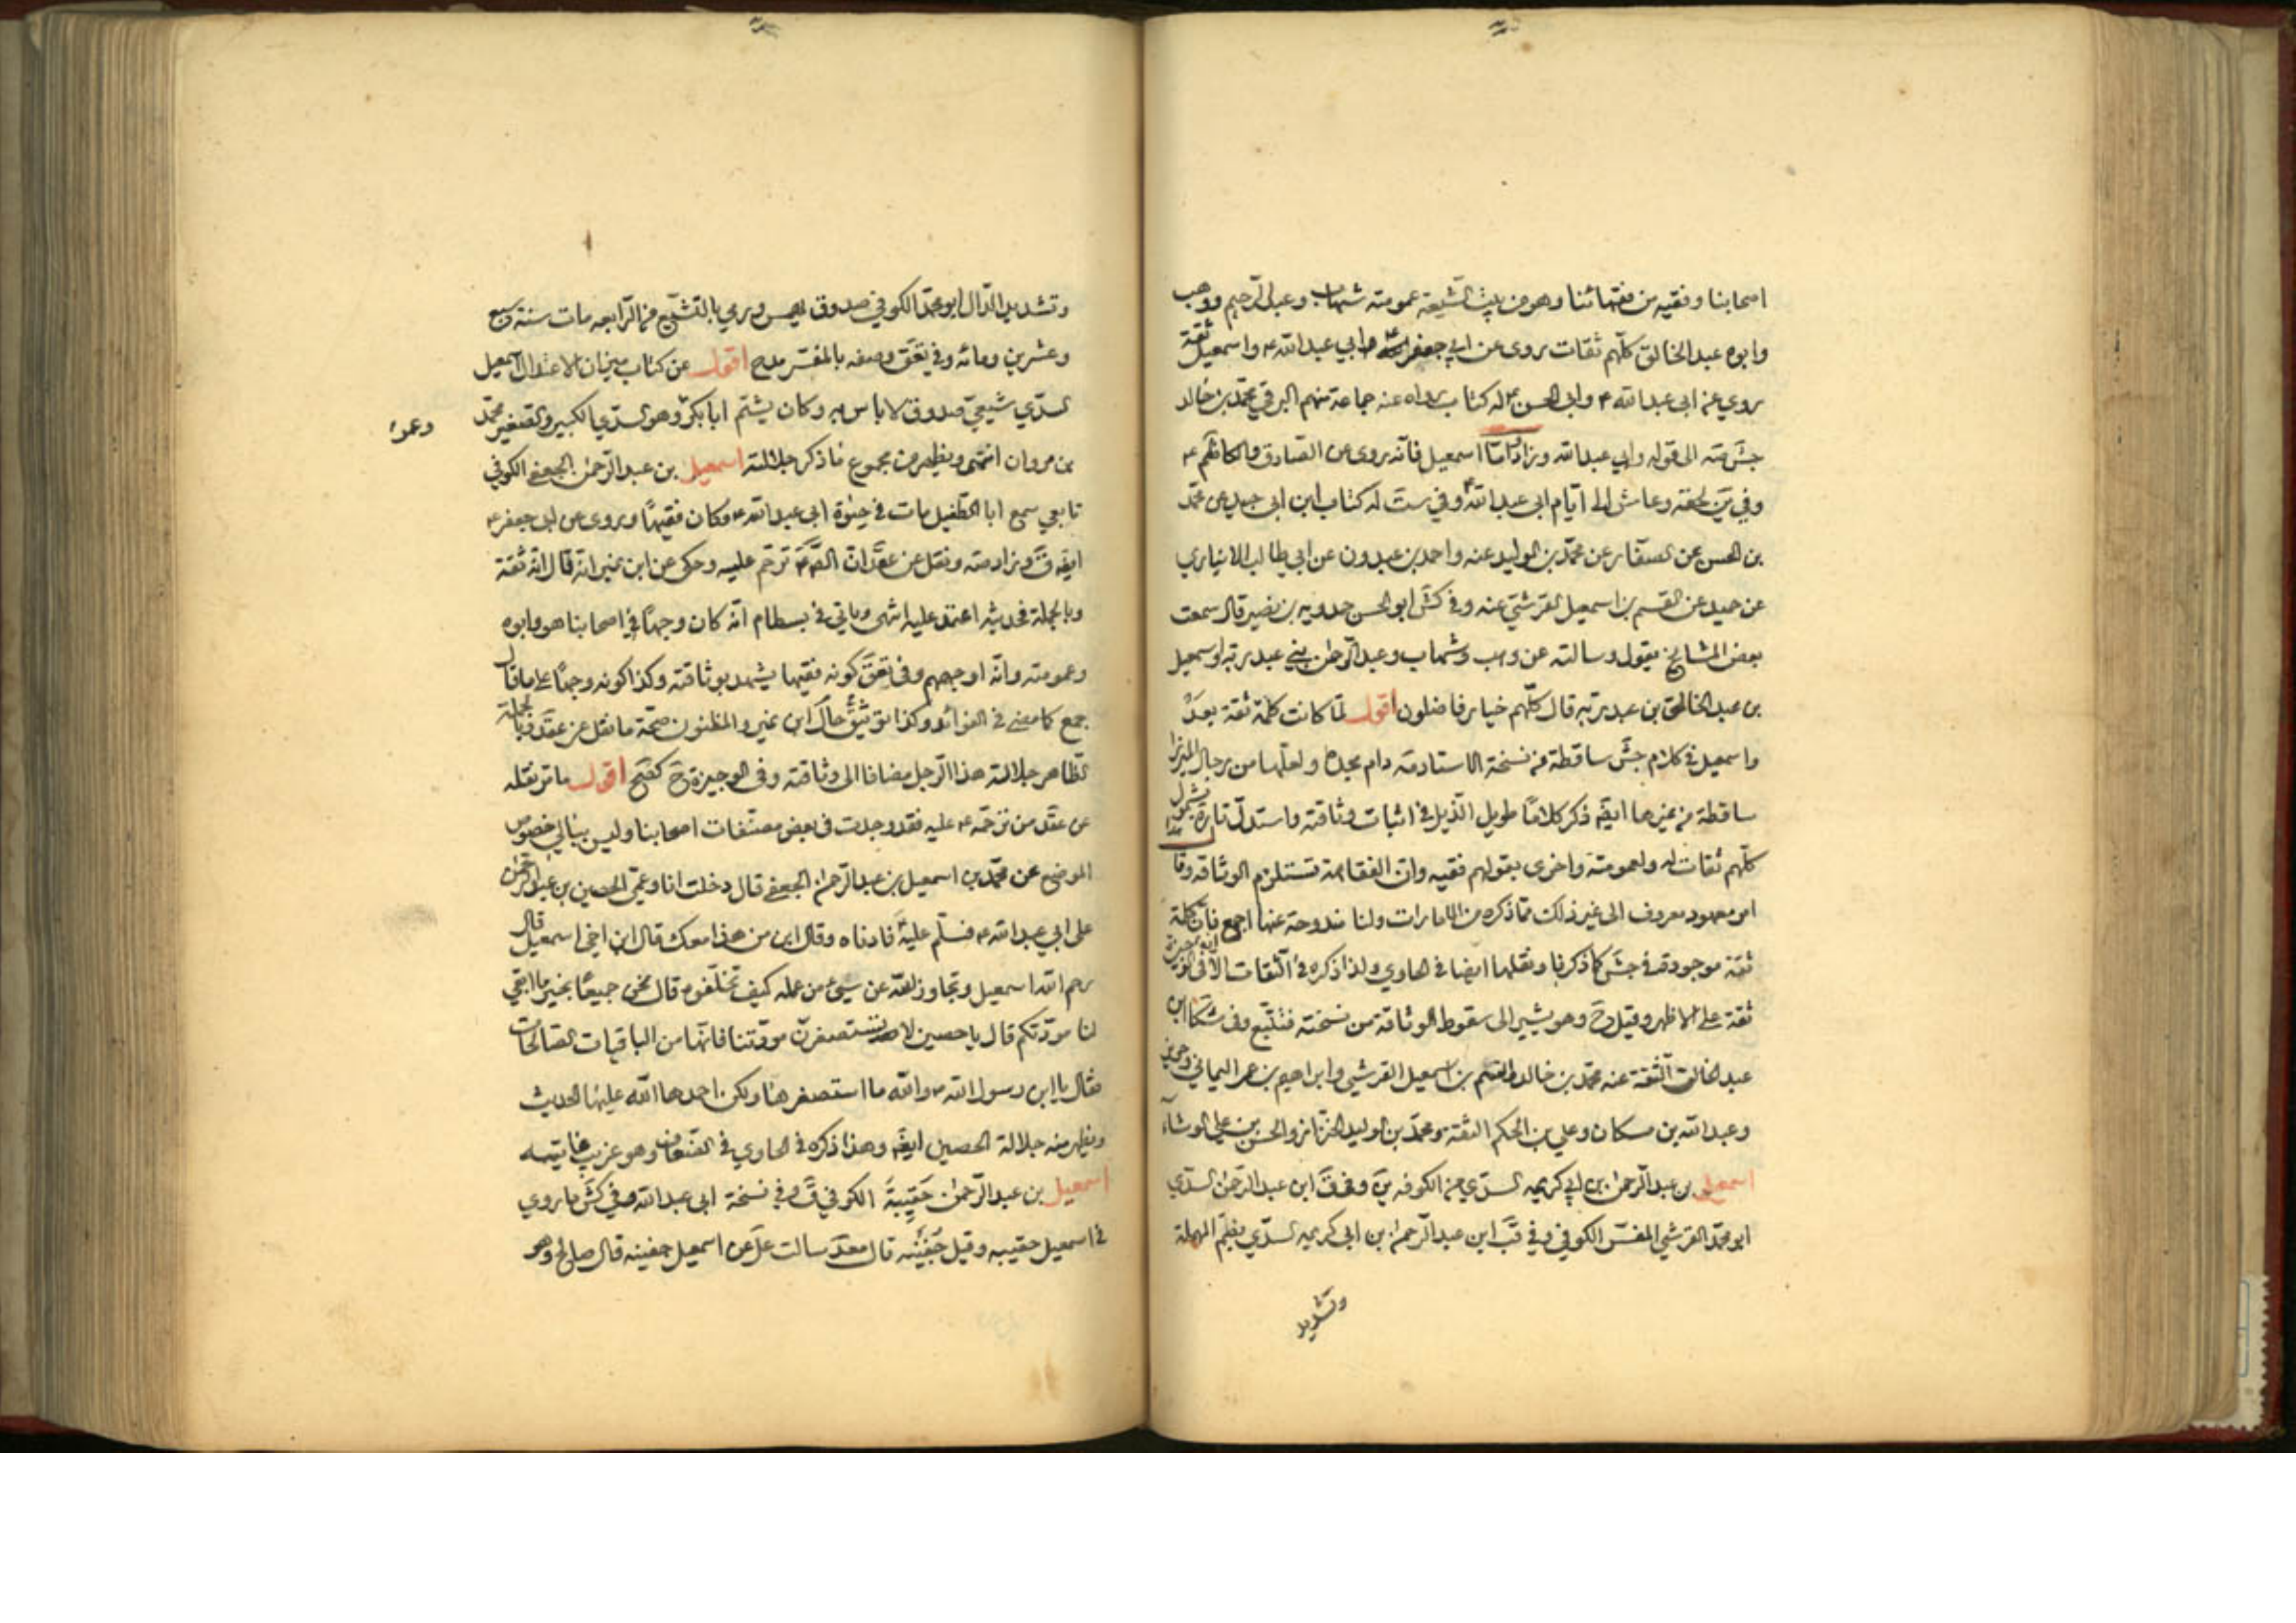 اصحابنا وفقيه من فقهائنا وهو من بيت الشيعة عمومته شهاب وعبد الرحيم ووهب
وابوه عبد الخالق كلّهم ثقات روى عن ابي جعفر وابي عبد الله ع واسمعيل ثقة
روي عن ابي عبد الله ع وابي الحسن ع له كتاب رواه عنه جماعة منهم البرقي محمّد بن خالد
جش صه الى قوله وابي عبد الله وزاد امّا اسمعيل فانّه روى عن الصادق والكاظم ع
وفي ين لحقه وعاش الى ايّام ابي عبد الله ع وفي ست له كتاب ابن ابي جيد عن محمّد
بن الحسن عن الصفّار عن محمّد بن الوليد عنه واحمد بن عبدون عن ابي طالب الانباري
عن حميد عن القسم بن اسمعيل القرشيّ عنه وفي كش ابو الحسن حمدويه بن نصير قال سمعت
بعض المشايخ يقول وسالته عن وهب وشهاب وعبد الرحمن بني عبد ربّه واسمعيل
بن عبد الخالق بن عبد ربّه قال كلّهم خيار فاضلون اقول لمّا كانت كلمة ثقة بعد
واسمعيل في كلام جش ساقطة من نسخة الاستاد دام مجده ولعلّها من رجال الميرزا
ساقطة من غيرها ايضا ذكر كلامًا طويل الذيل في اثبات وثاقته واستدلّ تارة بشمول
كلّهم ثقات له ولعمومته واخرى بقولهم فقيه وانّ الفقاهة تستلزم الوثاقة
امر معهود معروف الى غير ذلك ممّا ذكره من الامارات ولنا مندوحة عنها اجمع فانّ كلمة
ثقة موجودة في جش كما ذكرنا ونقلها ايضا في الحاوي ولذا ذكره في الثقات
ثقة على الاظهر وقيل ح وهو يشير الى سقوط الوثاقة من نسخته فتتبّع وفي مشكا ابن
عبد الخالق الثقة عنه محمّد بن خالد والقسم بن اسمعيل القرشي وابراهيم بن عمر اليماني
وعبد الله بن مسكان وعلي بن الحكم الثقة ومحمّد بن الوليد الخزّاز والحسن بن علي الوشّاء
اسمعيل بن عبد الرحمن بن ابي كريمه السدّي من الكوفه ين وفي ق ابن عبد الرحمن السدّي
ابو محمّد القرشي المفسّر الكوفي وفي قب ابن عبد الرحمن بن ابي كريمه السدّي بضمّ المهملة
وتشديد
وتشديد الدّال ابو محمّد الكوفي صدوق يهم ورمي بالتشيّع من الرّابعه مات سنة سبع
وعشرين ومائه وفي تعق وصفه بالمفسّر مدح اقول عن كتاب ميزان الاعتدال اسمعيل
السدّي شيعيّ صدوق لا باس به وكان يشتم ابا بكر وهو السدّي الكبير والصغير محمّد
وعمر
بن مروان انتهى ويظهر من مجموع ما ذكر جلالته اسمعيل بن عبد الرّحمن الجعفي الكوفي
تابعي سمع ابا الطفيل مات في حيوة ابي عبد الله ع وكان فقيهًا وروى عن ابي جعفر ع
ايضا ق وزاد صه ونقل عن عقد انّ الصّ ع ترحّم عليه وحكى عن ابن نمير انّه قال انّه ثقة
وبالجملة فحديثه اعتمد عليه انتهى وياتي في بسطام انّه كان وجهًا في اصحابنا هو وابوه
وعمومته وانّه اوجههم وفي تعق كونه فقيها يشهد بوثاقته وكذا كونه وجهًا على ما قال
جمع كما مضى في الفوائد وكذا توثيق ابن نمير والمظنون صحّة ما نقل عن عقد وبالجملة
الظّاهر جلالة هذا الرّجل مضافا الى وثاقته وفي الوجيزة ح كصح اقول ما مرّ نقله
عن عقد من ترحّمه ع عليه فقد وجدت في بعض مصنّفات اصحابنا وليس ببالي خصوص
الموضع عن محمّد بن اسمعيل بن عبد الرّحمن الجعفي قال دخلت انا وعمّي الحصين بن عبد الرحمن
على ابي عبد الله ع فسلّم عليه فادناه وقال ابن من هذا معك قال ابن اخي اسمعيل قال
رحم الله اسمعيل وتجاوز الله عن سيّئ من عمله كيف تخلّفوه قال نحن جميعًا بخير ما ابقى
لنا مودّتكم قال يا حصين لا تستصغرنّ مودّتنا فانّها من الباقيات الصّالحات
فقال يا ابن رسول الله ص والله ما استصغرها ولكن احمد الله عليها الحديث
ويظهر منه جلالة الحصين ايضا وهذا ذكره في الحاوي في الضعاف وهو غريب غايته
اسمعيل بن عبد الرّحمن حقيبة الكوفي ق وفي نسخة ابي عبد الله وفي كش ما روي
في اسمعيل حقيبه وقيل جفينه قال سالت علي عن اسمعيل جفينه قال صالح وهو